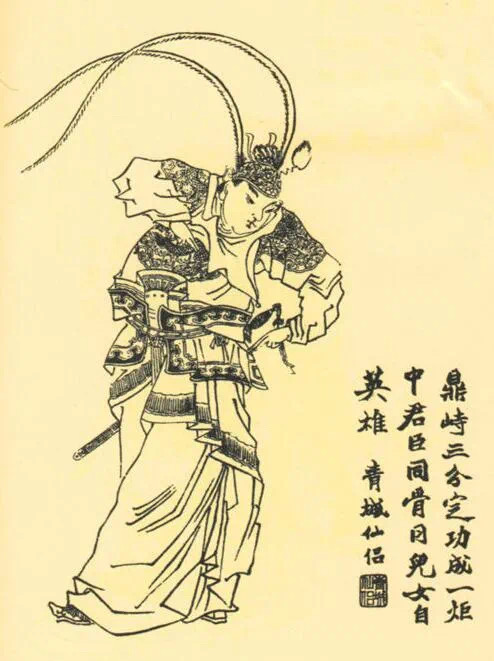 鼎峙三分定功成一炬
中君臣同骨肉兒女自
英雄 青城仙侣